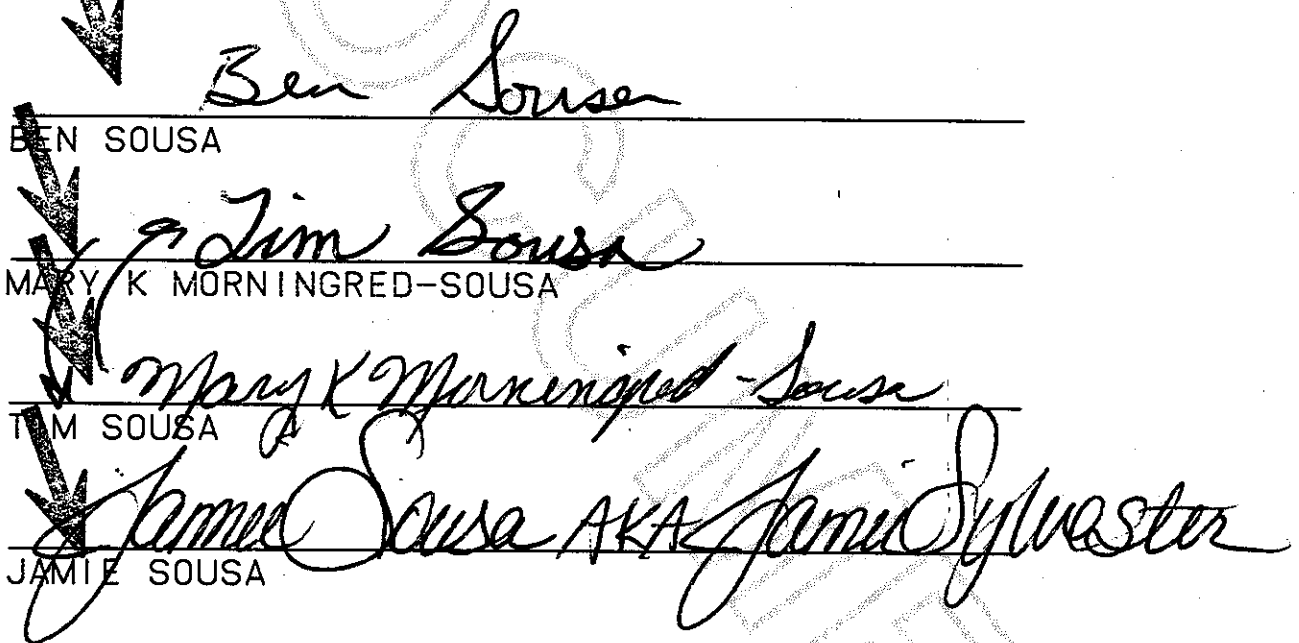 Ben Sousa
BEN SOUSA
Tim Sousa
MARY K MORNINGRED-SOUSA
Mary K Morningred-Sousa
TIM SOUSA
Jamie Sousa AKA Jamie Sylvester
JAMIE SOUSA